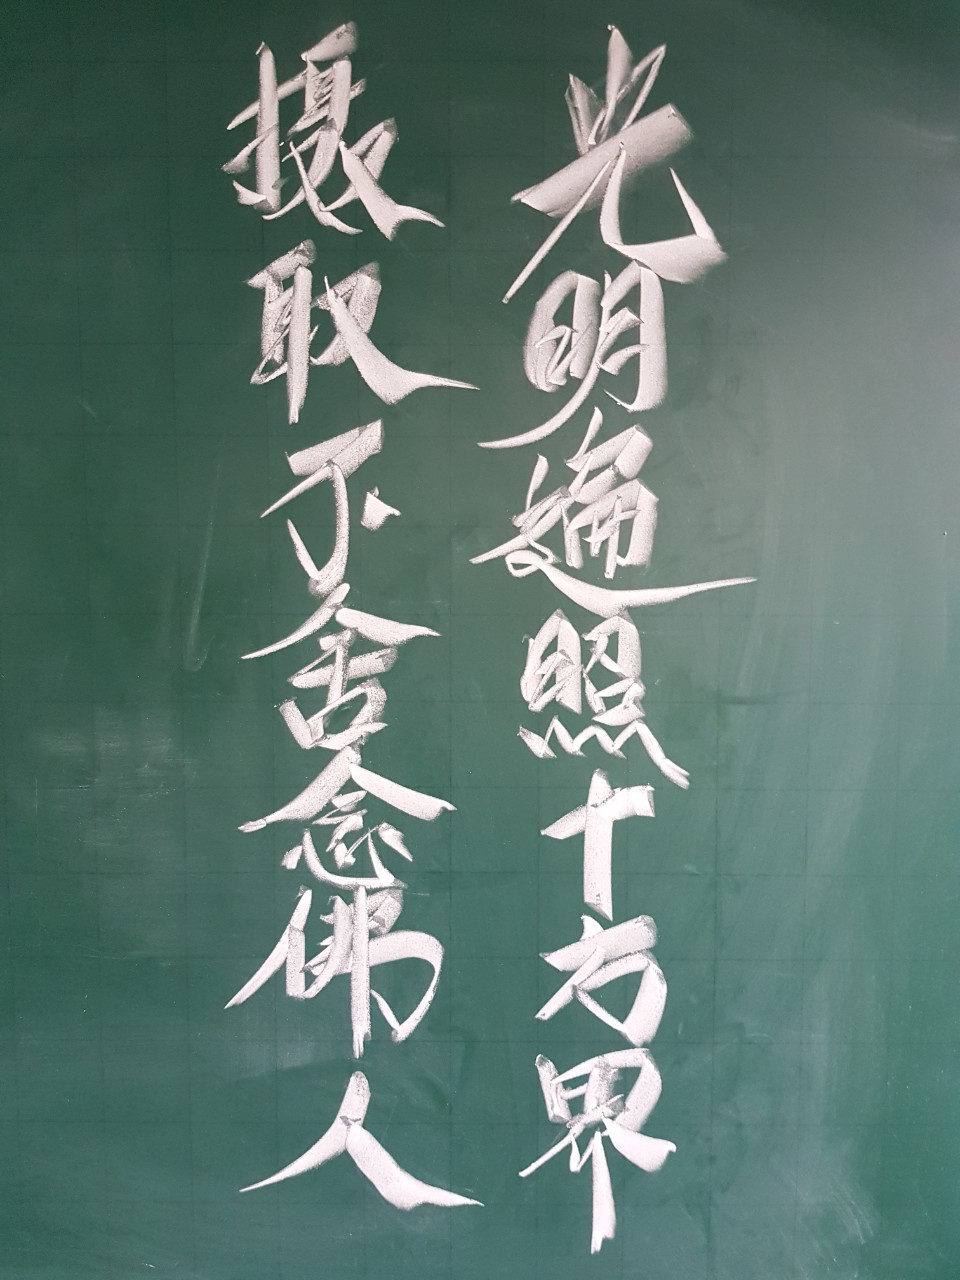 光明遍照十方界
摄取不舍念佛人